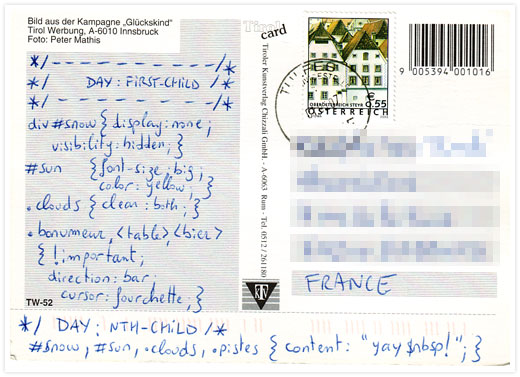 Bild aus der Kampagne „Glückskind"
Tirol Werbung, A-6010 Innsbruck
Foto: Peter Mathis
*/- - - - - - - - - -/*
*/ DAY : FIRST-CHILD /*
*/- - - - - - - - - -/*
div #snow { display : none ;
visibility : hidden ; }
#sun { font-size : big ;
color : yellow ; }
.clouds { clear : both ; }
.bonumeur, <table>, <bier>
{ ! important ;
direction : bar ;
cursor : fourchette ; }
TW-52
*/ DAY : NTH-CHILD /*
#snow, #sun, .clouds, .pistes { content : "yay $nbsp!" ; }
Tirol
card
Tiroler Kunstverlag Chizzali GmbH. - A-6063 Rum - Tel. 0512 / 261180
OBERÖSTERREICH STEYR
€ 0,55
ÖSTERREICH
9 005394 001016
FRANCE